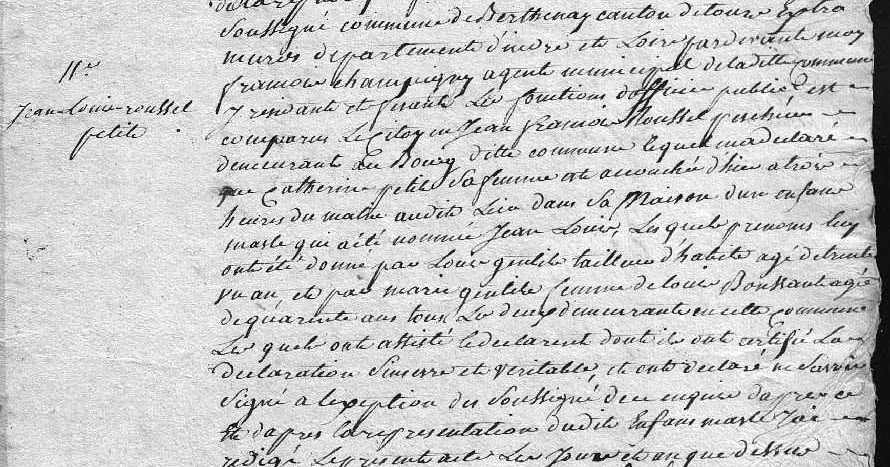 11e
Jean-Louis-roussel
petite
Soussigné commune de Berthenay canton de tours Extra
muros département d'indre et Loire pardevant moy
francois champigny agent municipal de la ditte commune
y rendant et faisant Les fonctions d'officier public est
comparus Le citoyen Jean francois Roussel pescheur
demeurant au Bourg ditte commune lequel ma declaré
que Catherine petite sa femme est accouchée d'hier a trois
heures du matin audit Lieu dans sa Maison d'un enfant
masle qui a été nommée Jean Louis, Lesquels prenoms luy
ont été donné par Louis gentils tailleur d'habits agé de trente
un an, et par marie gentils femme de louis Boussant agée
de quarente ans tous Les deux demeurante en cette commune
Lesquels ont assisté le declarent dont ils ont certifié La
declaration Sincerre et veritable, et ont declaré ne Savoir
Signé a lexeption des Soussigné de ce enquis dapres ce
Et dapres la representation dudit Enfant masle J'ai
redigé Le present acte Les Jour et an que dessus